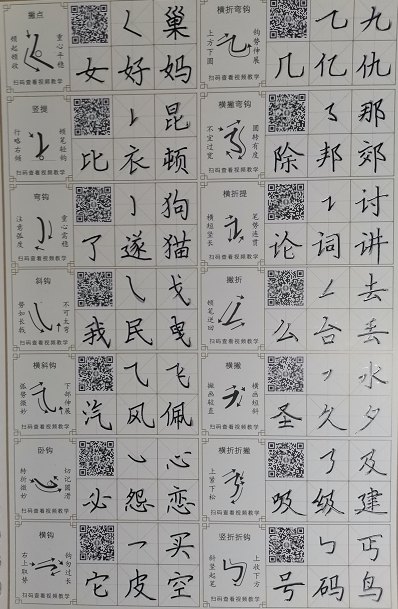 撇点
重心平稳
顿起顿收
扫码查看视频教学
巢
女 好 妈
竖提
顿笔轻钩
行略右倾
扫码查看视频教学
昆
比 衣 顿
弯钩
重心需稳
注意弧度
扫码查看视频教学
狗
了 遂 猫
斜钩
不可太弯
扫码查看视频教学
戈
我 民 曳
横斜钩
下部伸展
弧势微妙
扫码查看视频教学
飞
汽 风 佩
卧钩
切记圆滑
转折微妙
扫码查看视频教学
心
必 怨 恋
横钩
钩勿过长
右上取势
扫码查看视频教学
买
它 皮 空
横折弯钩
钩势伸展
上方下圆
扫码查看视频教学
九
几 亿 仇
横撇弯钩
圆转有度
不宜过宽
扫码查看视频教学
那
除 邦 郊
横折提
笔势连贯
横短竖长
扫码查看视频教学
讨
论 词 讲
撇折
顿笔逆回
扫码查看视频教学
去
么 台 丢
横撇
横画短斜
撇画较直
扫码查看视频教学
水
圣 久 夕
横折折撇
上紧下松
扫码查看视频教学
及
吸 级 建
竖折折钩
上收下方
斜竖起笔
扫码查看视频教学
丐
号 码 鸟